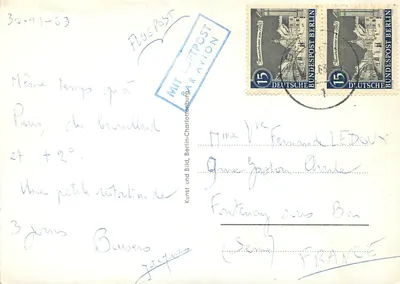 30-11-63
FLUGPOST
MIT LUFTPOST
PAR AVION
15
DEUTSCHE
BUNDESPOST BERLIN
15
DEUTSCHE
BUNDESPOST BERLIN
Même temps qu'à
Paris, du brouillard
et + 2°.
Une petite
de
3 jours
Kunst und Bild, Berlin-Charlottenburg
Mme Vve Fernand LEDOUX
9 rue
Fontenay sous Bois
(Seine)
FRANCE